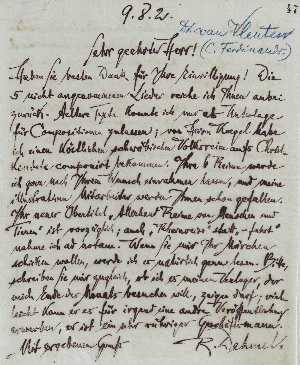 9.8.2.
Dr. van Vleuten
(C. Ferdinands.)
Sehr geehrter Herr!
Haben Sie besten Dank für Ihre Einwilligung! Die
5 nicht angenommenen Lieder reiche ich Ihnen anbei
zurück. Andere Texte konnte ich nur als Unterlage
für Compositionen zulassen; von habe
ich einen Köstlichen schwäbischen Volksreim aufs
componirt bekommen. Ihre 6 Reime werde
ich ganz nach Ihrem Wunsch einrahmen lassen, und meine
illustrativen Mitarbeiter werden Ihnen schon gefallen.
Ihr neuer Obertitel, "Allerhand Reime von Menschen und
Tieren" ist vorzüglich, auch
nehme ich ad notam. Wenn Sie mir Ihr Märchen
schicken wollen, werde ich es natürlich gerne lesen. Bitte,
schreiben Sie mir zugleich, ob ich es meinem Verleger, der
mich Ende des Monats besuchen will, zeigen darf; viel-
leicht kann er es für irgend eine andre Veröffentlichung
erwerben, er ist ein sehr rühriger Geschäftsmann.
Mit ergebenem Gruß
R. Dehmel.